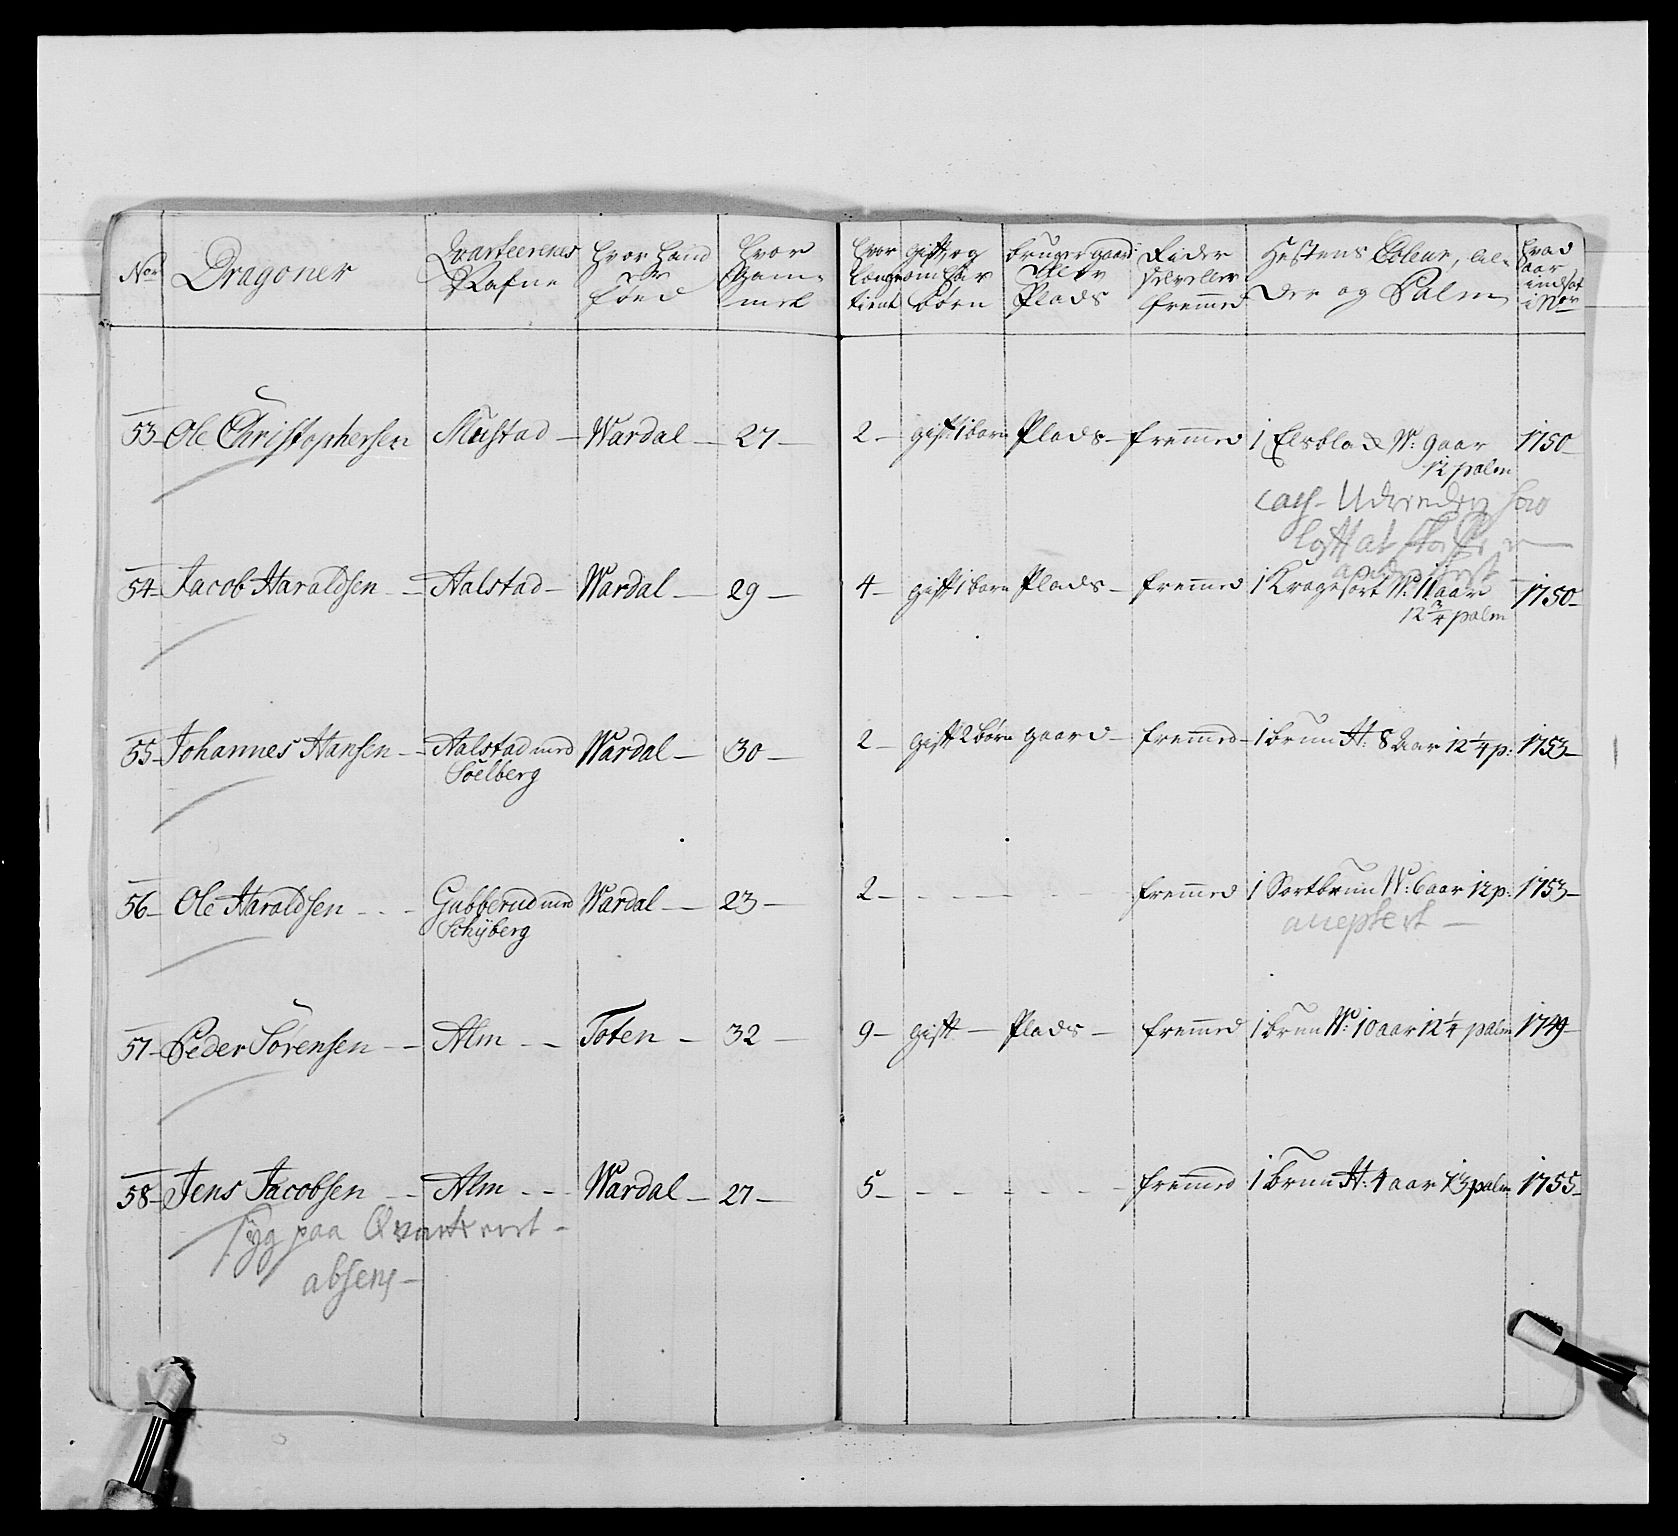 No Dragoner Qvarteerenes Nafne hvor hand er föed hvor Gammel hvor længe tient gift, og om har börn bruger gaard eller Plads Rider self eller fremmed Hestens Coleur, Alder og Palm hvad aar indsat i No
53 Ole Christophersen Mustad Wardal 27 2 gift 1 barn Plads fremmed 1 Elsbla W: 9 aar 12 palm 1750
54 Jacob Haraldsen Aalstad Wardal 29 4 gift 1 barn Plads fremmed 1 Kragesort W: 11 aar 12 3/4 palm 1750
55 Johannes Hansen Aalstad med Soelberg Wardal 30 2 gift 2 börn gaard fremmed 1 brun H: 8 Aar 12 1/4 p: 1753
56 Ole Haraldsen Gubberud med Schÿberg Wardal 23 2 fremmed 1 Sortbrun W: 6 aar 12 p: 1753
accepteret
57 Peder Sörensen Alm Toten 32 9 gift Plads fremmed 1 brun W: 10 aar 12 1/4 palm 1749
58 Jens Jacobsen Alm Wardal 27 5 fremmed 1 brun H: 4 aar 13 palm 1755
Syg paa Qvarteret
absens